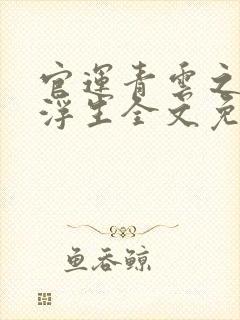 官運青雲之
浮生全文免
鱼吞鲸